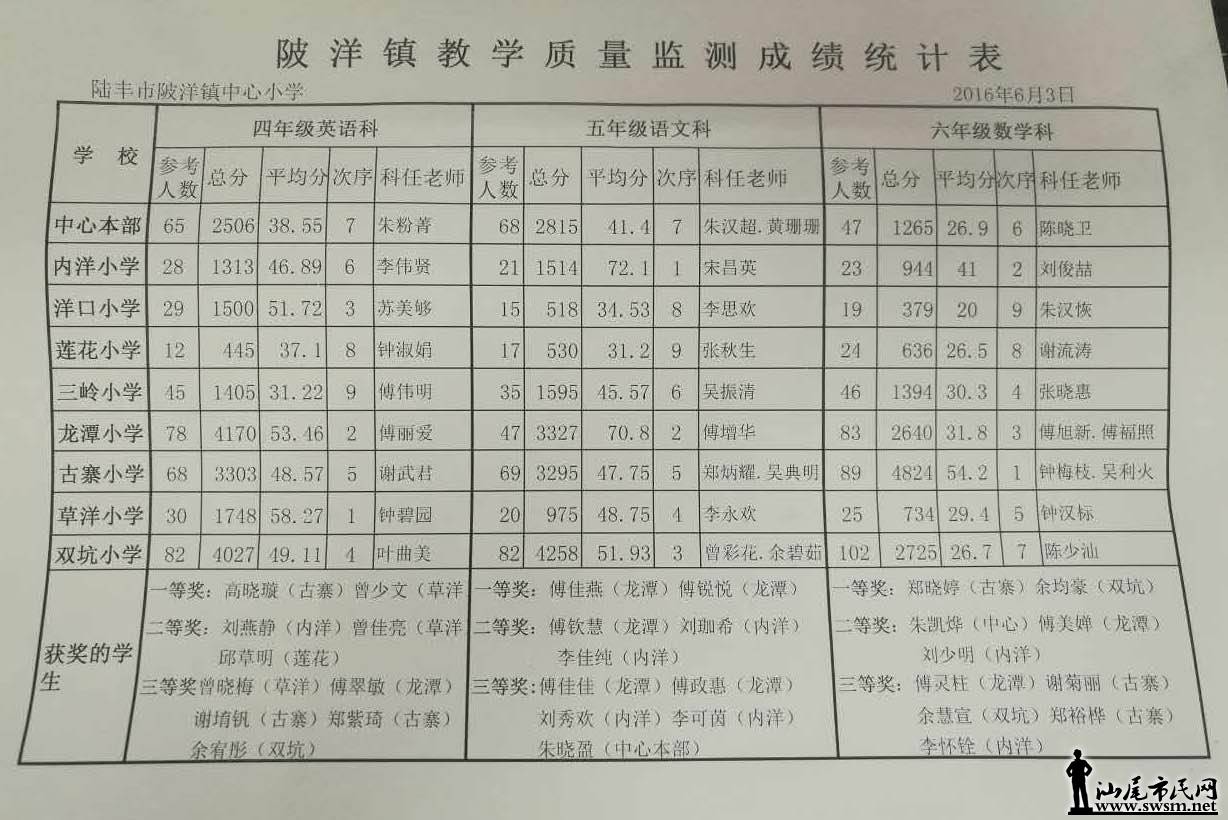 陂洋镇教学质量监测成绩统计表
陆丰市陂洋镇中心小学 2016年6月3日
学校 四年级英语科 五年级语文科 六年级数学科
参考人数 总分 平均分 次序 科任老师 参考人数 总分 平均分 次序 科任老师 参考人数 总分 平均分 次序 科任老师
中心本部 65 2506 38.55 7 朱粉菁 68 2815 41.4 7 朱汉超.黄珊珊 47 1265 26.9 6 陈晓卫
内洋小学 28 1313 46.89 6 李伟贤 21 1514 72.1 1 宋昌英 23 944 41 2 刘俊喆
洋口小学 29 1500 51.72 3 苏美够 15 518 34.53 8 李思欢 19 379 20 9 朱汉恢
莲花小学 12 445 37.1 8 钟淑娟 17 530 31.2 9 张秋生 24 636 26.5 8 谢流涛
三岭小学 45 1405 31.22 9 傅伟明 35 1595 45.57 6 吴振清 46 1394 30.3 4 张晓惠
龙潭小学 78 4170 53.46 2 傅丽爱 47 3327 70.8 2 傅增华 83 2640 31.8 3 傅旭新.傅福照
古寨小学 68 3303 48.57 5 谢武君 69 3295 47.75 5 郑炳耀.吴典明 89 4824 54.2 1 钟梅枝.吴利火
草洋小学 30 1748 58.27 1 钟碧园 20 975 48.75 4 李永欢 25 734 29.4 5 钟汉标
双坑小学 82 4027 49.11 4 叶曲美 82 4258 51.93 3 曾彩花.余碧茹 102 2725 26.7 7 陈少汕
获奖的学生
一等奖：高晓璇（古寨）曾少文（草洋
二等奖：刘燕静（内洋）曾佳亮（草洋
邱草明（莲花）
三等奖曾晓梅（草洋）傅翠敏（龙潭）
谢堉钒（古寨）郑紫琦（古寨）
余宥彤（双坑）
一等奖：傅佳燕（龙潭）傅锐悦（龙潭）
二等奖：傅钦慧（龙潭）刘珈希（内洋）
李佳纯（内洋）
三等奖:傅佳佳（龙潭）傅政惠（龙潭）
刘秀欢（内洋）李可茵（内洋）
朱晓盈（中心本部）
一等奖：郑晓婷（古寨）余均豪（双坑）
二等奖：朱凯烨（中心）傅美婵（龙潭）
刘少明（内洋）
三等奖：傅灵柱（龙潭）谢菊丽（古寨）
余慧宣（双坑）郑裕桦（古寨）
李怀铨（内洋）
汕尾市民网
www.swsm.net